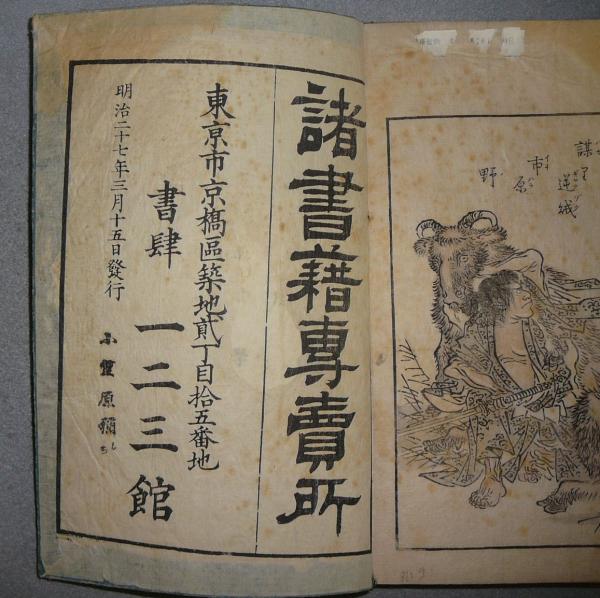 諸書藉專賣所
東京市京橋區築地貳丁目拾五番地
書肆 一二三館
明治二十七年三月十五日發行
市原野